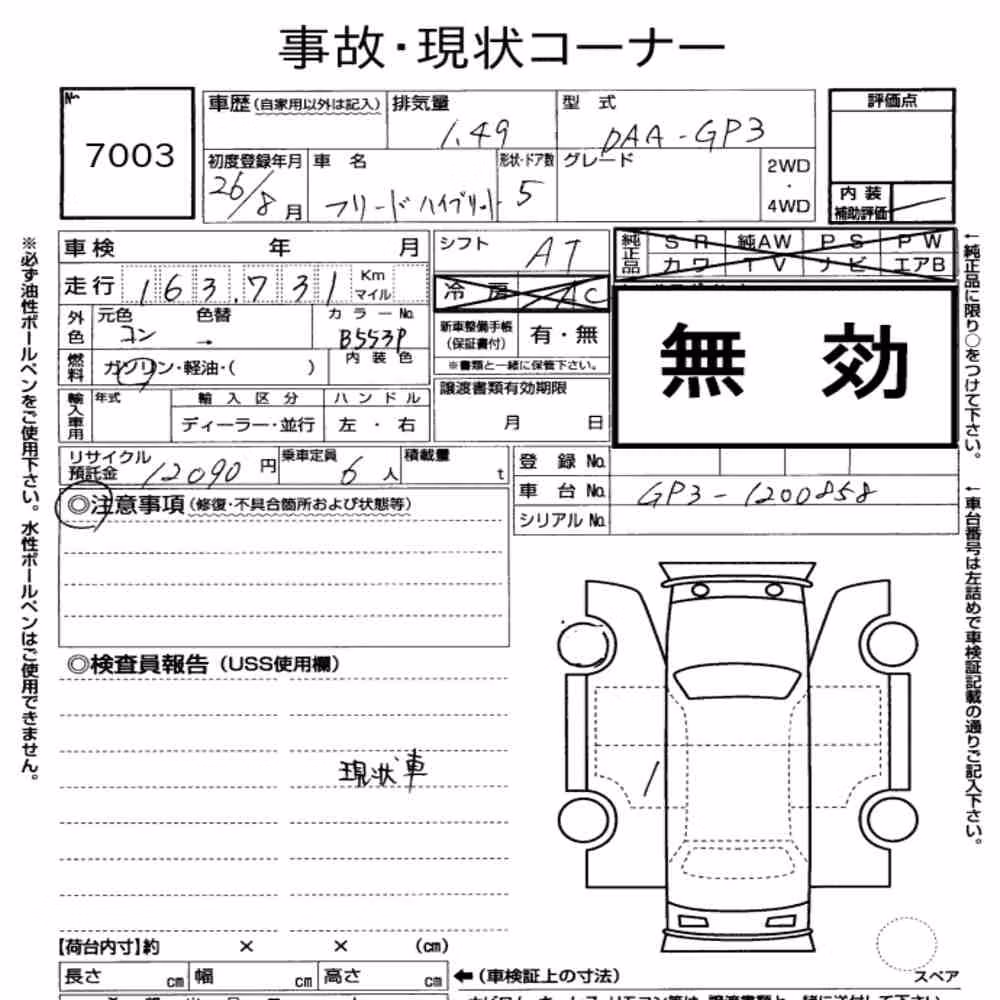 事故・現状コーナー
No.
7003
車歴 (自家用以外は記入)
排気量
1.49
型 式
DAA-GP3
評価点
初度登録年月
26/8 月
車 名
フリードハイブリット
形状・ドア数
5
グレード
2WD
・
4WD
内装
補助評価
車検 年 月
シフト
AT
純正品
SR 純AW PS PW
カワ TV ナビ エアB
走行 163,731 Km マイル
冷 房 AC
外色
元色
コン
色替
→
カラーNo.
B553P
新車整備手帳
(保証書付)
有・無
※書類と一緒に保管下さい。
無 効
燃料
ガソリン・軽油・( )
内装色
譲渡書類有効期限
月 日
輸入車用
年式
輸入区分
ハンドル
ディーラー・並行
左 ・ 右
リサイクル
預託金 12090 円
乗車定員
6 人
積載量
t
登 録 No.
車 台 No. GP3-1200858
シリアル No.
◎注意事項 (修復・不具合箇所および状態等)
◎検査員報告 (USS使用欄)
現状車
【荷台内寸】約 × × (cm)
長さ cm 幅 cm 高さ cm
←(車検証上の寸法)
スペア
※必ず油性ボールペンをご使用下さい。水性ボールペンはご使用できません。
←純正品に限り○をつけて下さい。
←車台番号は左詰めで車検証記載の通りご記入下さい。